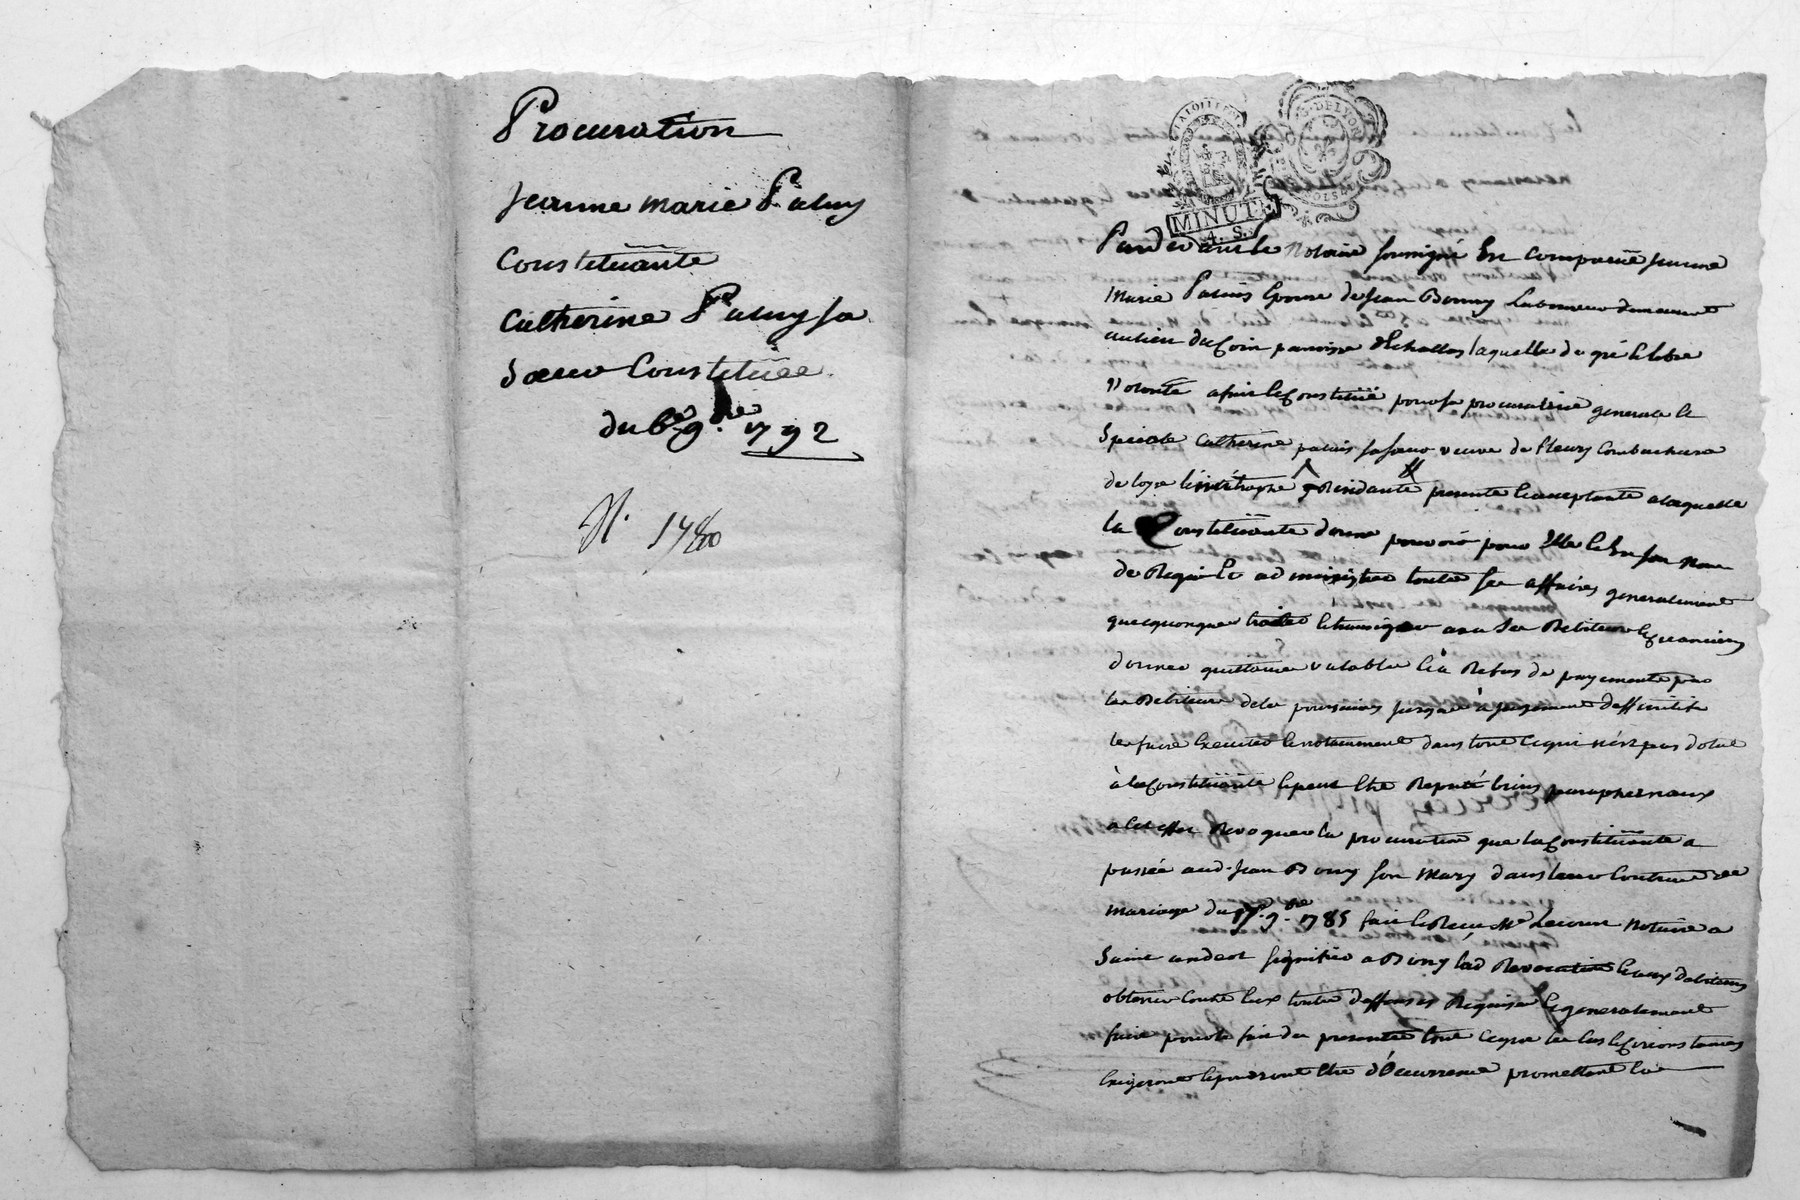 Procuration
Jeanne marie Paluy
Constituante
Catherine Paluy sa
Soeur Constituée
du 6e 9.bre 1792
N. 1780
LA LOI ET LE
DE LYON
MINUTE
4. S.
Pardevant le Notaire soussigné En comparüe jeanne
Marie Paluis Epouse de Jean Bonny Laboureur demeurant
au lieu du Coin paroisse d'Echallas laquelle de gré & libre
Volonté a fait & constitüé pour sa procuratrice generale &
Speciale Catherine paluis sa soeur veuve de fleury Combechere
de Residante presente & acceptante a laquelle
la Constitüante donne pouvoir pour Elle & En son nom
de Regir & administrer toutes ses affaires generalement
quecquonques traiter & transiger avec Ses Debiteurs & creanciers
donner quittance valable & à Refus de payements par
les Debiteurs de les poursuivre jusque à jugement deffinitif
les faire Executer & notamment dans tout ce qui n'est pas dotal
à la Constitüante & peut Etre Reputé biens paraphernaux
a cet effet Revoquer la procuration que la Constitüante a
passée aud. Jean Bony son Mary dans leur Contrat de
mariage du 9.bre 1785 fait & Recu Me Notaire a
Saint andeol signifier a Bony lad Revocation & aux debiteurs
obtenir Contre Eux toutes deffenses Requises & generalement
faire pour le fait des presentes tout ce que les cas & circonstances
Exigeront & pourront Etre d'Occurrence promettant la